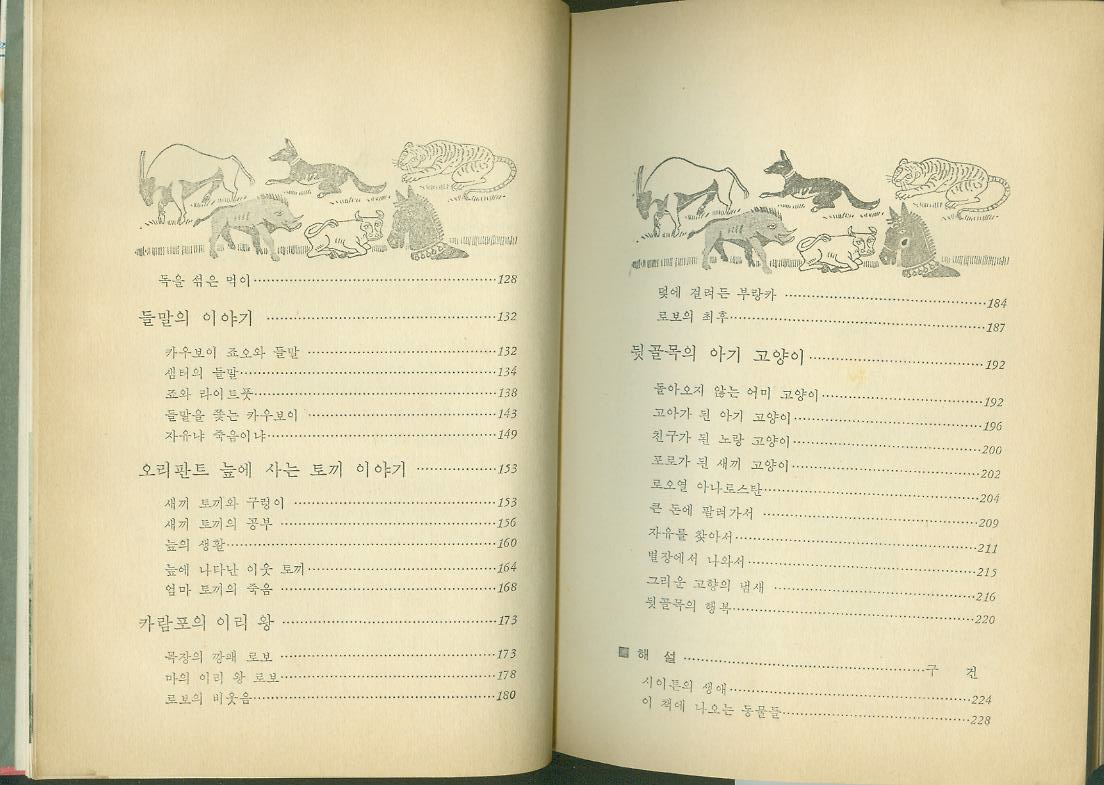 독을 섞은 먹이 128
들말의 이야기 132
카우보이 죠오와 들말 132
샘터의 들말 134
죠와 라이트풋 138
들말을 쫓는 카우보이 143
자유냐 죽음이냐 149
오리판트 늪에 사는 토끼 이야기 153
새끼 토끼와 구렁이 153
새끼 토끼의 공부 156
늪의 생활 160
늪에 나타난 이웃 토끼 164
엄마 토끼의 죽음 168
카람포의 이리 왕 173
목장의 깡패 로보 173
마의 이리 왕 로보 178
로보의 비웃음 180
덫에 걸려든 부랑카 184
로보의 최후 187
뒷골목의 아기 고양이 192
돌아오지 않는 어미 고양이 192
고아가 된 아기 고양이 196
친구가 된 노랑 고양이 200
포로가 된 새끼 고양이 202
로오열 아나로스탄 204
큰 돈에 팔려가서 209
자유를 찾아서 211
별장에서 나와서 215
그리운 고향의 냄새 216
뒷골목의 행복 220
해 설 구 건
시이튼의 생애 224
이 책에 나오는 동물들 228